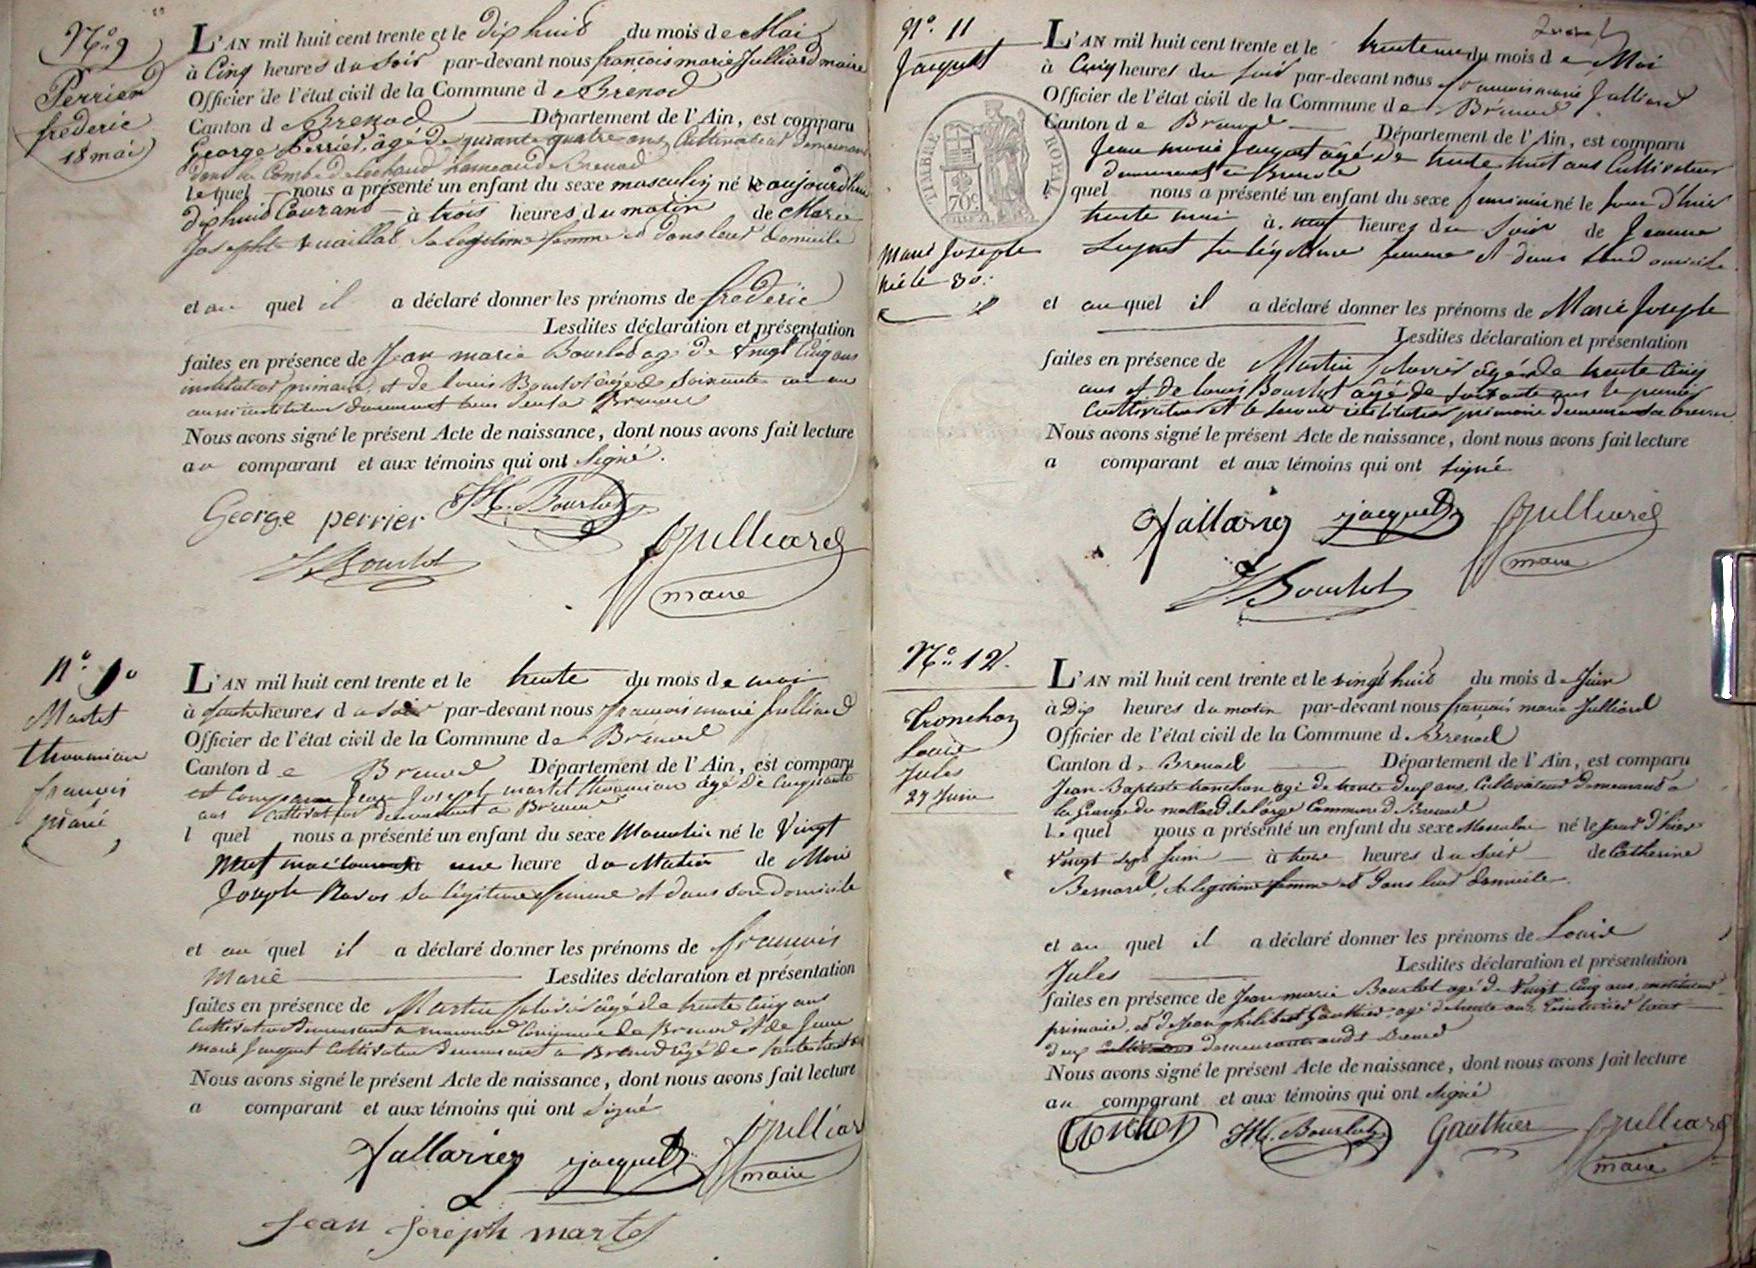 N° 9
Perrier
frederic
18 mai
L'AN mil huit cent trente et le dix huit du mois de Mai
à Cinq heures du Soir par-devant nous françois marie Julliard maire
Officier de l'état civil de la Commune de Brenod
Canton de Brenod Département de l'Ain, est comparu
George Perrier, âgé de quarante quatre ans, Cultivateur demeurant
dans la Combe de Léchaud hameau de Brenod
Lequel nous a présenté un enfant du sexe masculin né le aujourd'hui
dix huit Courant à trois heures du matin de Marie
Josephte Sa légitime femme et dans leur domicile
et au quel il a déclaré donner les prénoms de frederic
Lesdites déclaration et présentation
faites en présence de Jean marie Bourlot âgé de Vingt Cinq ans
instituteur primaire, et de Louis Bourlot âgé de Soixante un ans
aussi instituteur demeurant tous deux à Brenod
Nous avons signé le présent Acte de naissance, dont nous avons fait lecture
au comparant et aux témoins qui ont Signé.
George perrier JM. Bourlot
L Bourlot
fJulliard
maire
N° 10
Martel
thoumian
francois
marie
L'AN mil huit cent trente et le trente du mois de mai
à heures du Soir par-devant nous françois marie Julliard
Officier de l'état civil de la Commune de Brenod
Canton de Brenod Département de l'Ain, est comparu
est comparu Jean Joseph martel thoumian âgé De Cinquante
ans Cultivateur demeurant a Brenod
l quel nous a présenté un enfant du sexe Masculin né le Vingt
Neuf mai Courant à une heure du Matin de Marie
Joseph Ravos Sa légitime femme et dans son domicile
et au quel il a déclaré donner les prénoms de francois
Marie Lesdites déclaration et présentation
faites en présence de Martin âgé de trente Cinq ans
Cultivateur demeurant a de Brenod et de Jean
marie Jacquet Cultivateur demeurant a Brenod âgé de trente huit ans
Nous avons signé le présent Acte de naissance, dont nous avons fait lecture
a comparant et aux témoins qui ont Signé
jacquet
fJulliard
maire
Jean Joseph martel
N° 11
Jacquet
Marie Joseph
née le 30.
TIMBRE ROYAL
70c
L'AN mil huit cent trente et le trente un du mois de Mai
à Cinq heures du Soir par-devant nous francois marie Julliard
Officier de l'état civil de la Commune de Brenod
Canton de Brenod Département de l'Ain, est comparu
Jean marie Jacquet âgé De trente huit ans Cultivateur
demeurant a Brenod
l quel nous a présenté un enfant du sexe feminin né le jour d'hier
trente mai à neuf heures du Soir de Jeanne
Sa légitime femme et dans leur domicile
et au quel il a déclaré donner les prénoms de Marie Joseph
Lesdites déclaration et présentation
faites en présence de Martin âgé de trente Cinq
ans et De Louis Bourlot âgé de soixante ans le premier
Cultivateur et le second instituteur primaire demeurant a brenod
Nous avons signé le présent Acte de naissance, dont nous avons fait lecture
a comparant et aux témoins qui ont signé
jacquet fJulliard
maire
L Bourlot
N° 12.
Tronchon
Louis
Jules
27 Juin
L'AN mil huit cent trente et le vingt huit du mois de Juin
à Dix heures du matin par-devant nous françois marie Julliard
Officier de l'état civil de la Commune de Brenod
Canton de Brenod Département de l'Ain, est comparu
Jean Baptiste tronchon âgé de trente deux ans, Cultivateur demeurant à
la Grange du mollard de l'orge Commune de Brenod
Lequel nous a présenté un enfant du sexe Masculin né le jour d'hier
Vingt Sept Juin à trois heures du Soir de Catherine
Bernard, Sa légitime femme et dans leur domicile
et au quel il a déclaré donner les prénoms de Louis
Jules Lesdites déclaration et présentation
faites en présence de Jean marie Bourlot âgé de Vingt Cinq ans, instituteur
primaire, et de Jean philibert Gauthier âgé de trente ans tous
deux demeurant audit Brenod
Nous avons signé le présent Acte de naissance, dont nous avons fait lecture
au comparant et aux témoins qui ont Signé
Tronchon JM. Bourlot Gauthier fJulliard
maire